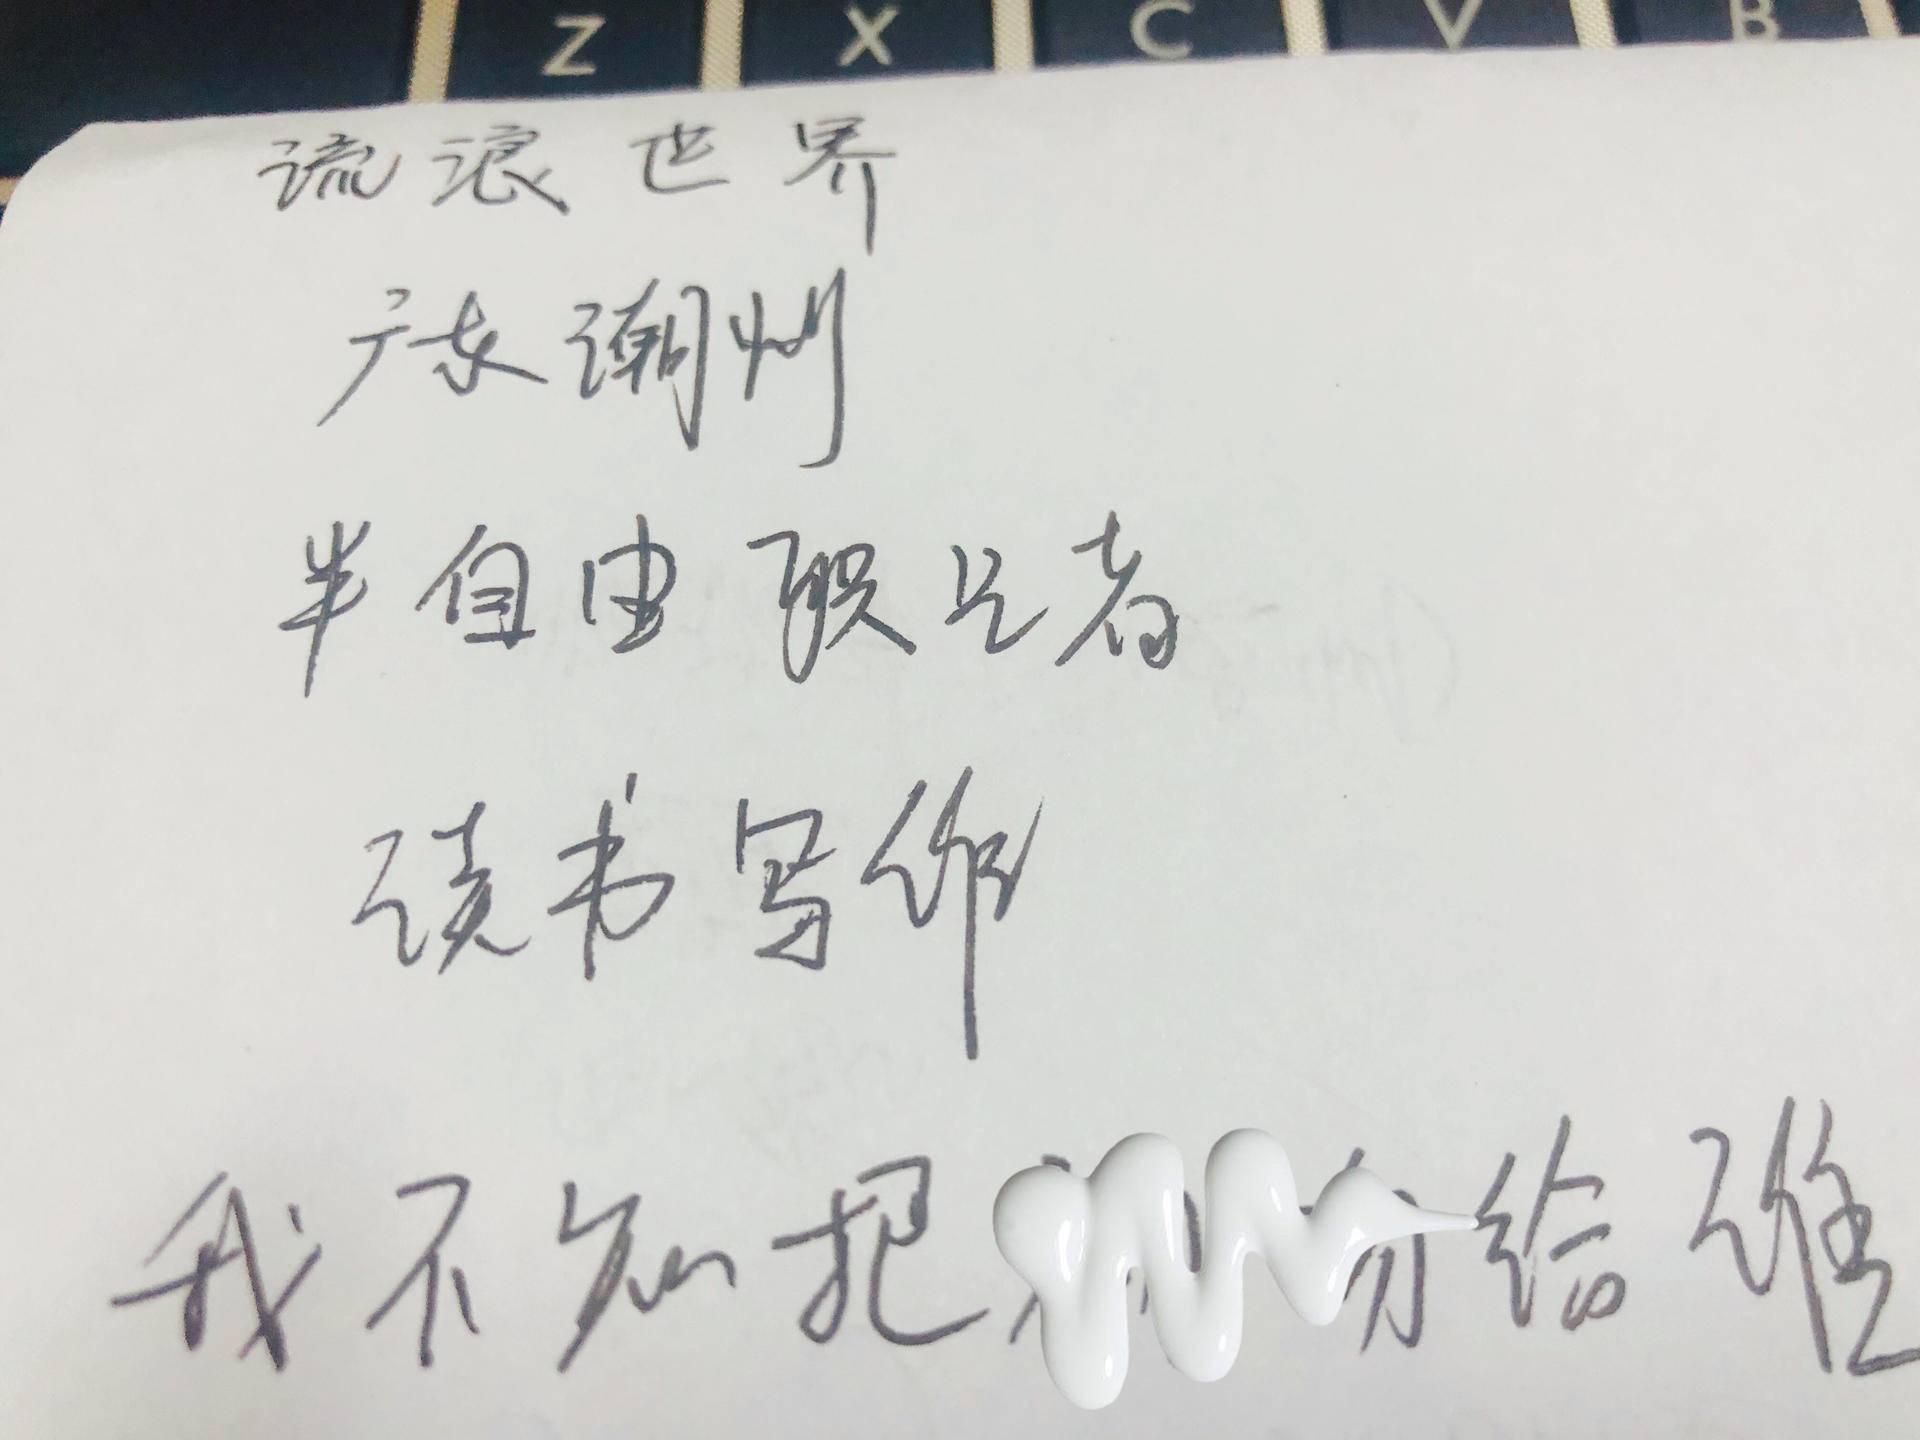 Z X C V B
流浪世界
广东潮州
半自由职业者
读书写作
我不知把 给谁